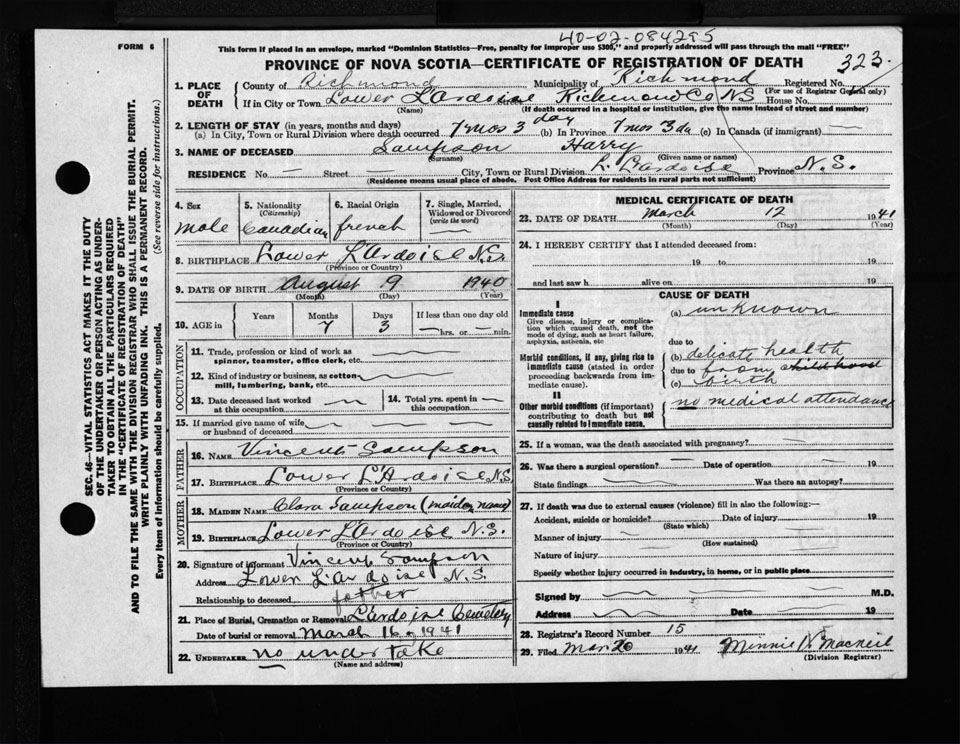 40-02-084295
FORM 6
This form if placed in an envelope, marked "Dominion Statistics—Free, penalty for improper use $300," and properly addressed will pass through the mail "FREE"
PROVINCE OF NOVA SCOTIA—CERTIFICATE OF REGISTRATION OF DEATH
323.
1. PLACE OF DEATH County of Richmond Municipality of Richmond Registered No.
(For use of Registrar General only)
If in City or Town Lower L'Ardoise Richmond Co NS House No.
(Name) (If death occurred in a hospital or institution, give the name instead of street and number)
2. LENGTH OF STAY (in years, months and days)
(a) In City, Town or Rural Division where death occurred 7 mos 3 day (b) In Province 7 mos 3 da (c) In Canada (if immigrant)
3. NAME OF DECEASED Sampson Harry
(Surname) (Given name or names)
RESIDENCE No. — Street City, Town or Rural Division L. L'Ardoise Province N.S.
(Residence means usual place of abode. Post Office Address for residents in rural parts not sufficient)
4. Sex male
5. Nationality (Citizenship) Canadian
6. Racial Origin french
7. Single, Married, Widowed or Divorced (write the word)
8. BIRTHPLACE Lower L'Ardoise N.S.
(Province or Country)
9. DATE OF BIRTH August 9 1940
(Month) (Day) (Year)
10. AGE in Years Months 7 Days 3 If less than one day old — hrs. or — min.
OCCUPATION
11. Trade, profession or kind of work as spinner, teamster, office clerk, etc.
12. Kind of industry or business, as cotton mill, lumbering, bank, etc.
13. Date deceased last worked at this occupation
14. Total yrs. spent in this occupation
15. If married give name of wife or husband of deceased
FATHER
16. NAME Vincent Sampson
17. BIRTHPLACE Lower L'Ardoise N.S.
(Province or Country)
MOTHER
18. MAIDEN NAME Clara Sampson (maiden name)
19. BIRTHPLACE Lower L'Ardoise N.S.
(Province or Country)
20. Signature of informant Vincent Sampson
Address Lower L'Ardoise N.S.
Relationship to deceased father
21. Place of Burial, Cremation or Removal L'Ardoise Cemetery
Date of burial or removal March 16 1941
22. UNDERTAKER no undertake
(Name and address)
MEDICAL CERTIFICATE OF DEATH
23. DATE OF DEATH March 12 1941
(Month) (Day) (Year)
24. I HEREBY CERTIFY that I attended deceased from:
19 to 19
and last saw h alive on 19
CAUSE OF DEATH
I
Immediate cause
Give disease, injury or complication which caused death, not the mode of dying, such as heart failure, asphyxia, asthenia, etc
(a) unknown
due to
Morbid conditions, if any, giving rise to immediate cause (stated in order proceeding backwards from immediate cause).
(b) delicate health
due to from childhood
(c) birth
II
Other morbid conditions (if important) contributing to death but not causally related to immediate cause.
no medical attendance
25. If a woman, was the death associated with pregnancy?
26. Was there a surgical operation? Date of operation 19
State findings Was there an autopsy?
27. If death was due to external causes (violence) fill in also the following:—
Accident, suicide or homicide? Date of injury 19
(State which)
Manner of injury
(How sustained)
Nature of injury
Specify whether injury occurred in industry, in home, or in public place
Signed by M.D.
Address Date 19
28. Registrar's Record Number 15
29. Filed Mar 26 1941 Minnie MacNeil
(Division Registrar)
SEC. 46—VITAL STATISTICS ACT MAKES IT THE DUTY
OF THE UNDERTAKER OR PERSON ACTING AS UNDER-
TAKER TO OBTAIN ALL THE PARTICULARS REQUIRED
IN THE "CERTIFICATE OF REGISTRATION OF DEATH"
AND TO FILE THE SAME WITH THE DIVISION REGISTRAR WHO SHALL ISSUE THE BURIAL PERMIT.
WRITE PLAINLY WITH UNFADING INK. THIS IS A PERMANENT RECORD.
Every item of information should be carefully supplied. (See reverse side for instructions.)